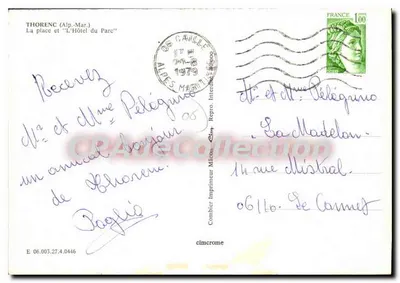 THORENC (Alp.-Mar.)
La place et "L'Hôtel du Parc"
Recevez
Mr et Mme Pélégrino
un amical bonjour
de Thorenc.
Paglio
E 06.003.27.4.0446
06 CAILLE
1979
ALPES MARIT
FRANCE
1,00
Combier Imprimeur Mâcon
cimcrome
CPACollection
Mr et Mme Pélégrino
La Madelon
14 rue Mistral
06110 - Le Cannet